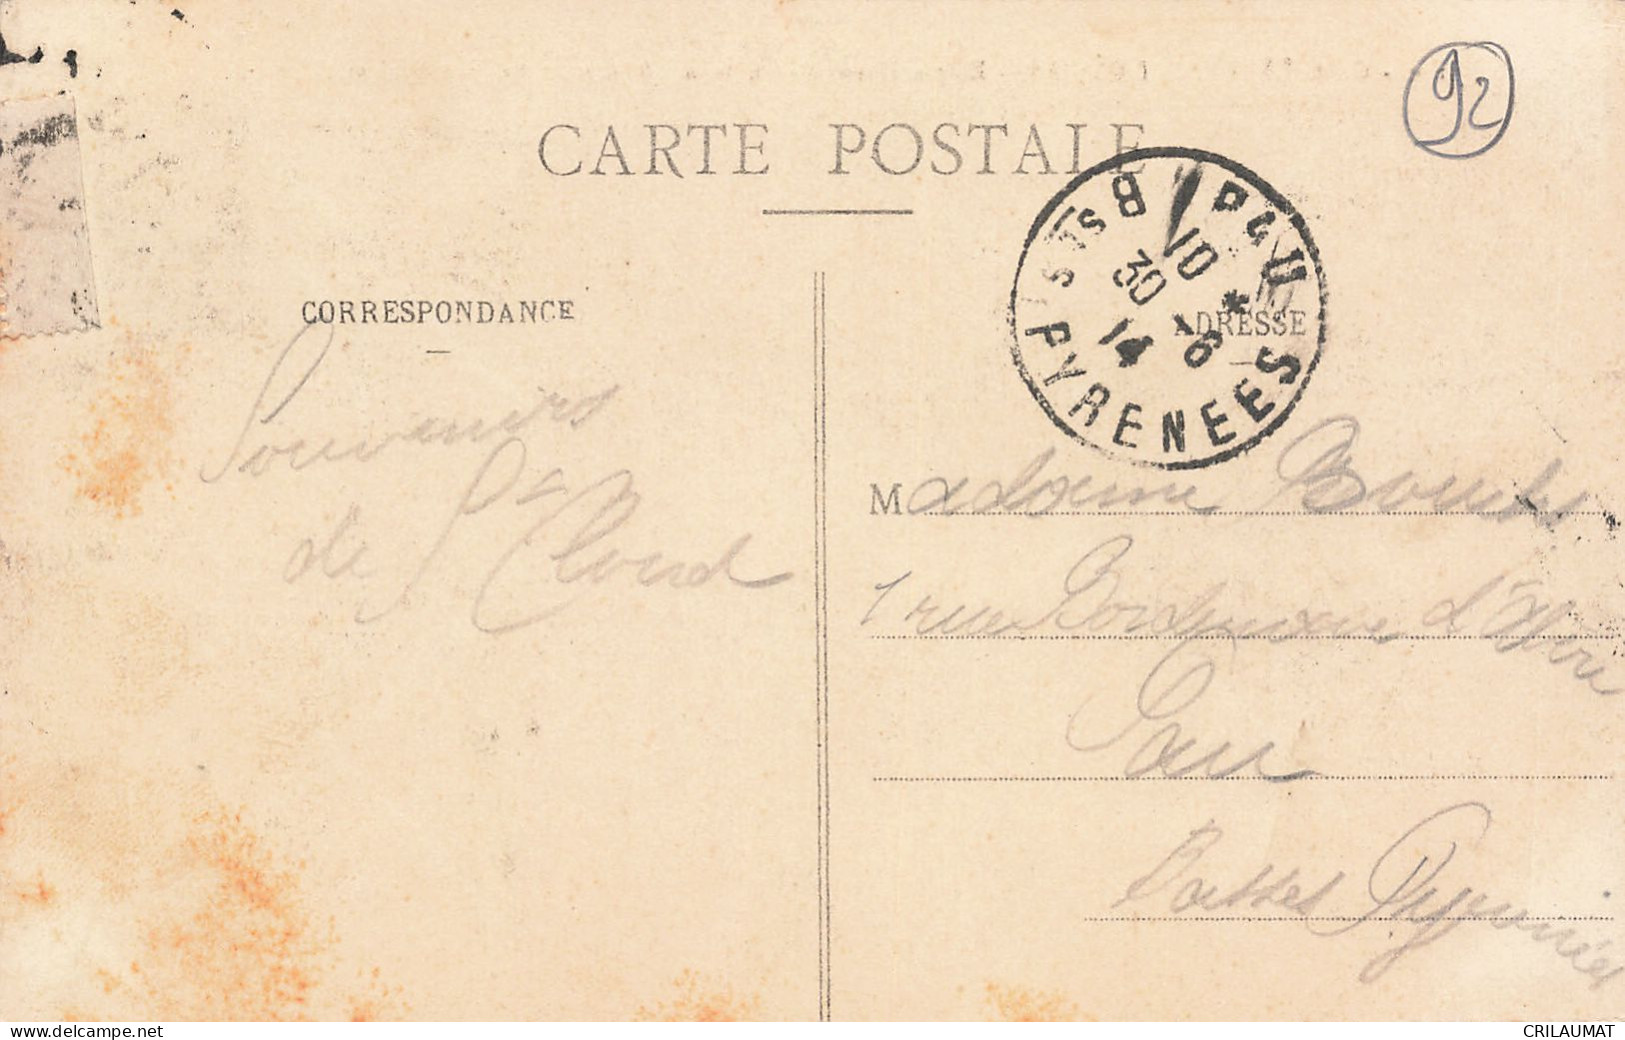 92
CARTE POSTALE
PAU
Bses PYRENEES
10
30 -6
14
CORRESPONDANCE
ADRESSE
Souvenirs
de St Cloud
Madame
1 rue Bordenave d'Abère
Pau
Basses Pyrénées
www.delcampe.net
CRILAUMAT